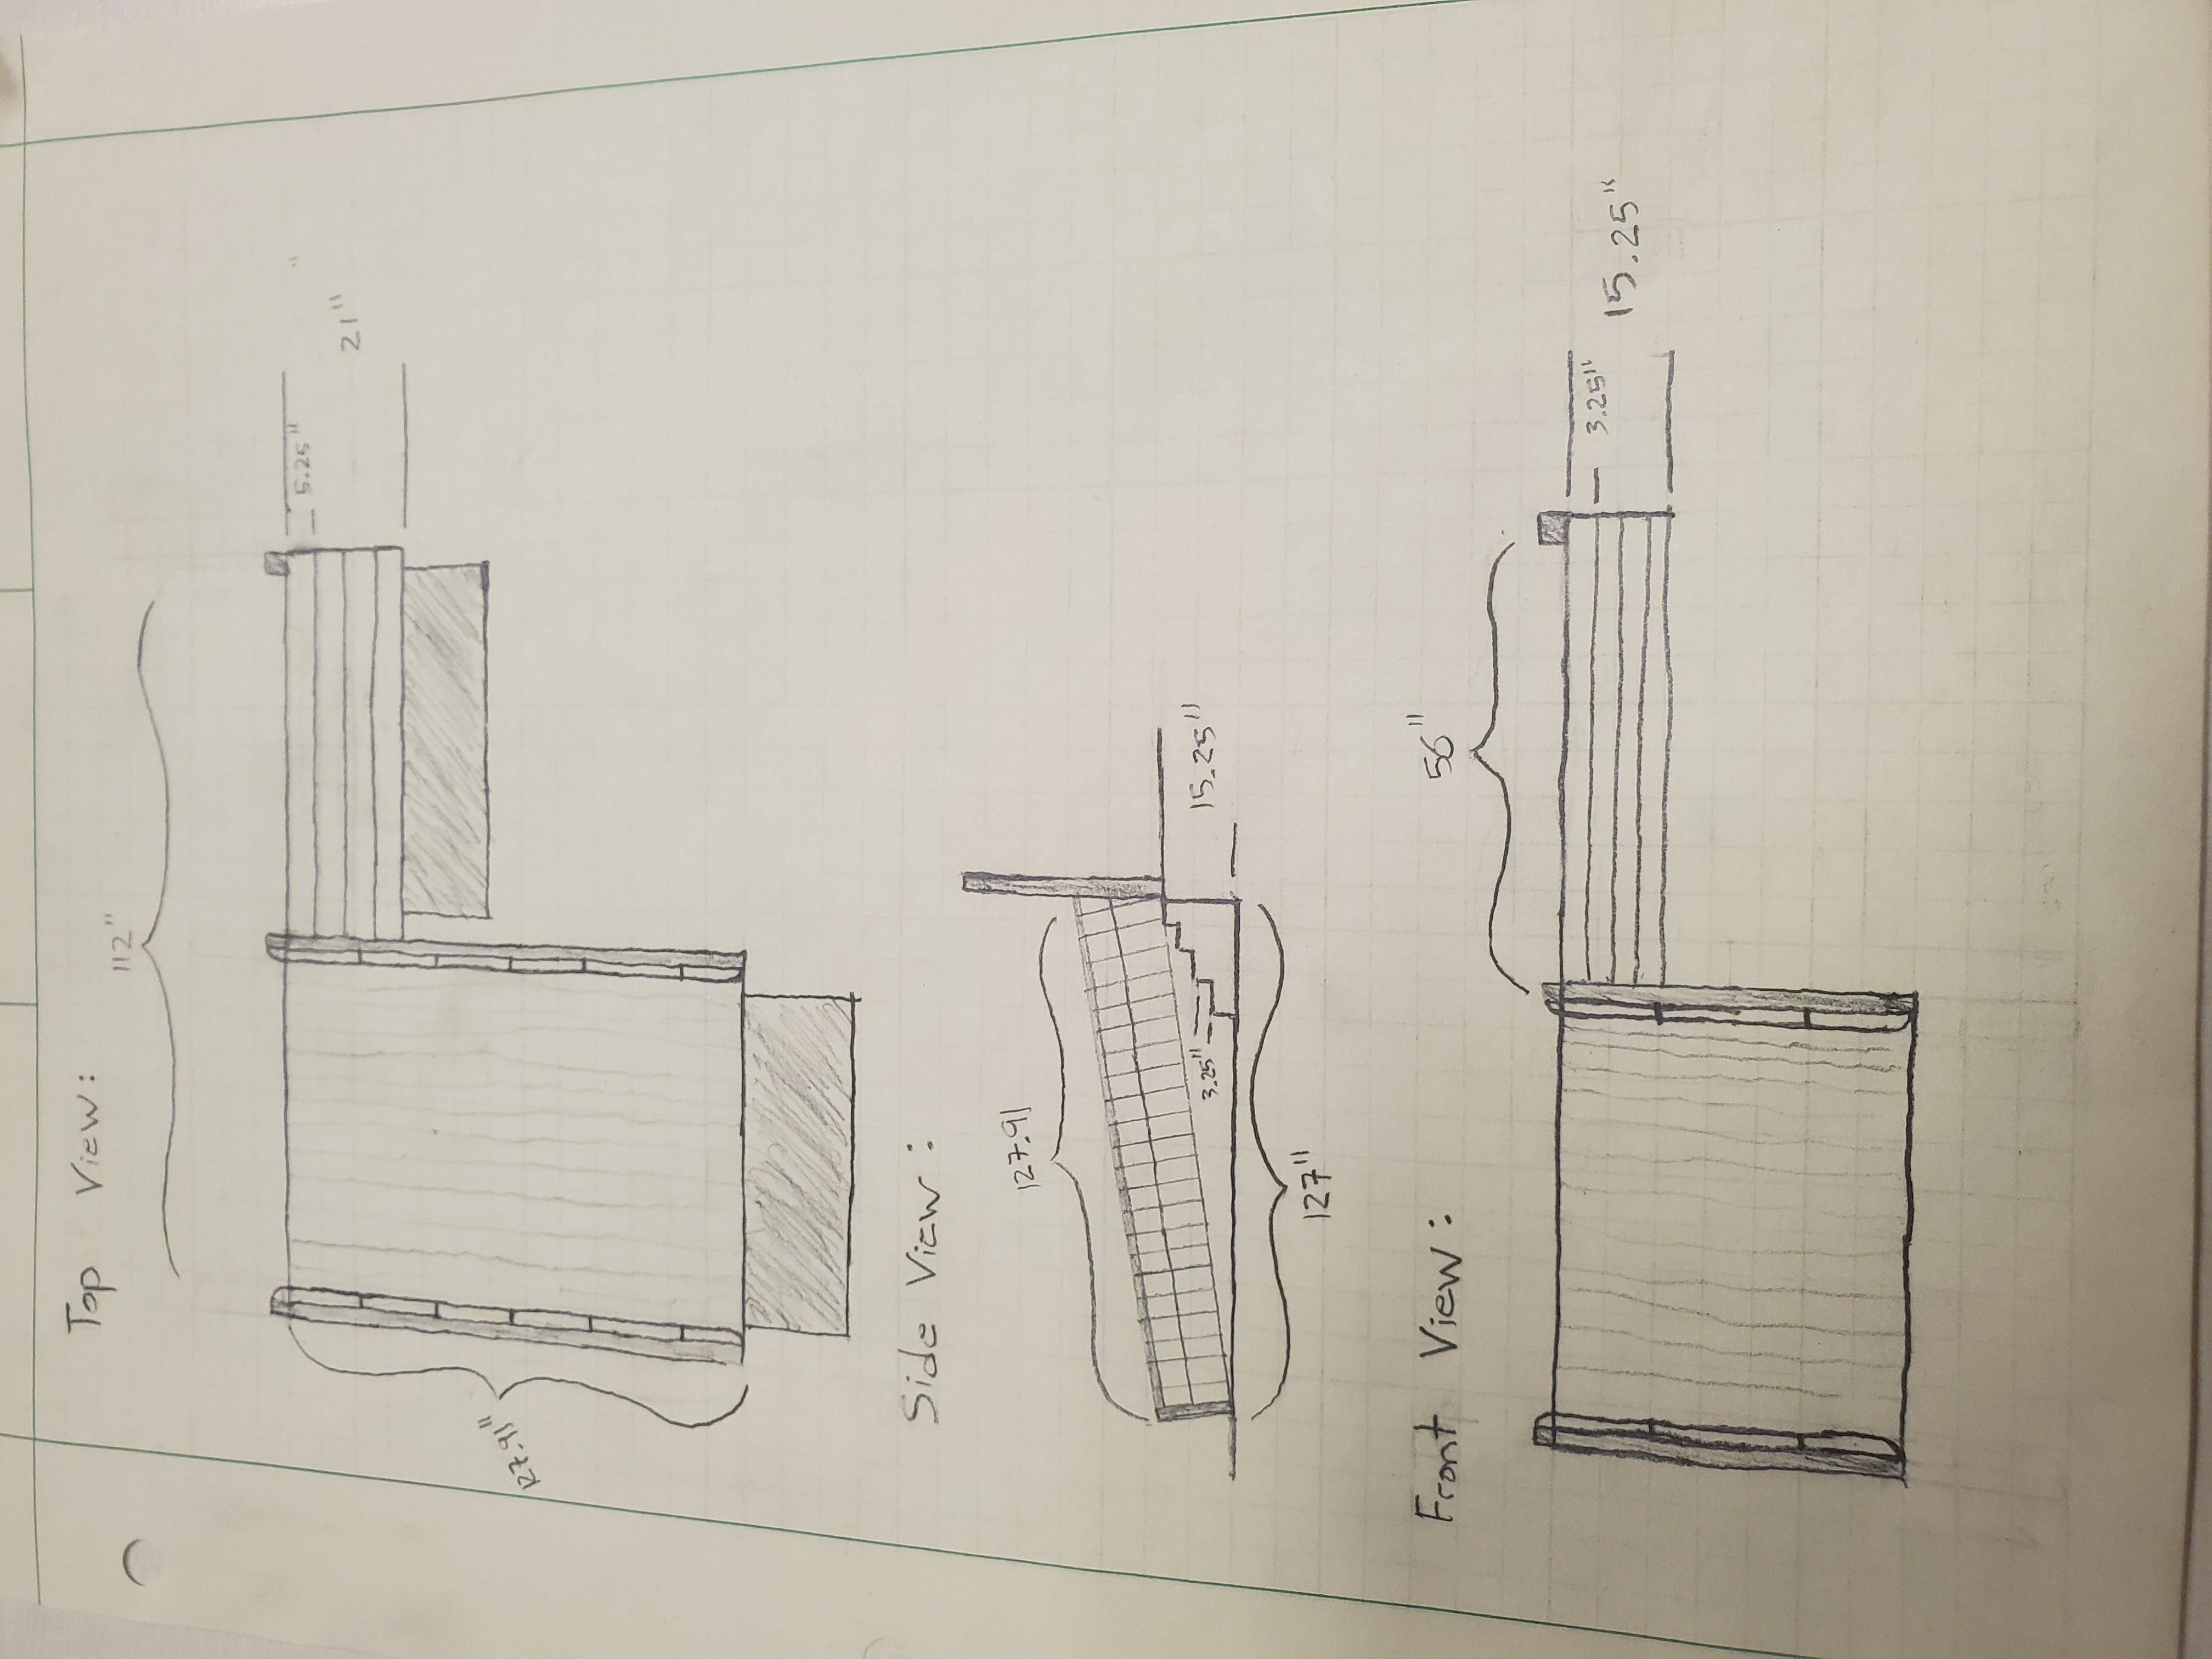 Top View:
112"
5.25"
21"
127.91"
Side View:
127.91
3.25"
15.25"
127"
Front View:
56"
3.25"
15.25"